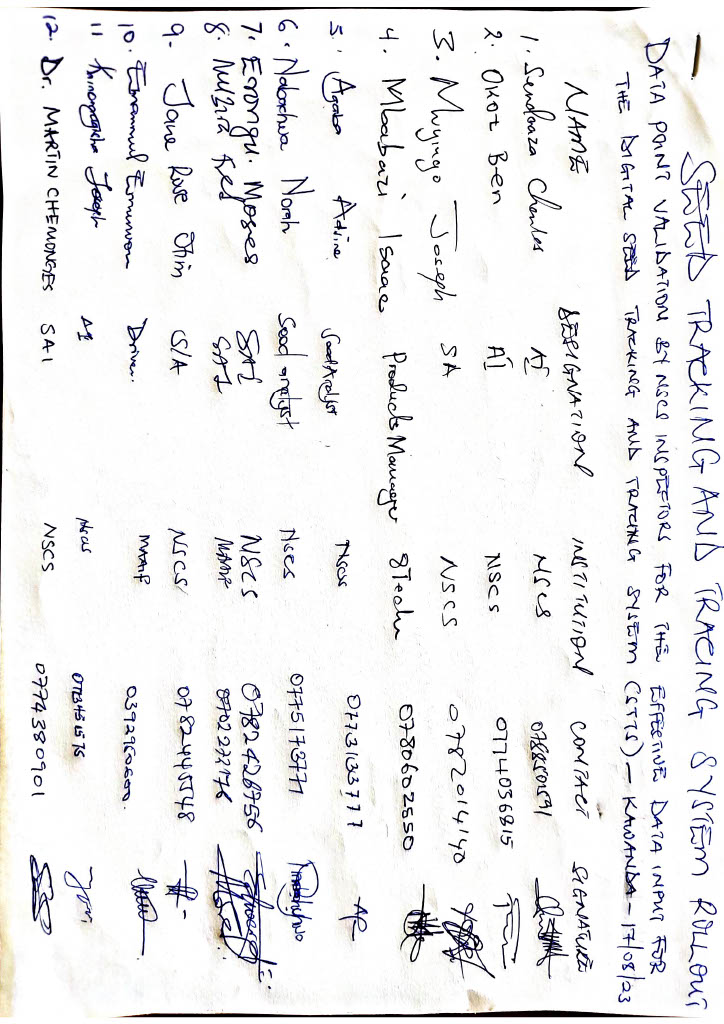 SEED TRACKING AND TRACING SYSTEM ROLLOUT
DATA POINT VALIDATION BY NSCS INSPECTORS FOR THE EFFECTIVE DATA INPUT FOR
THE DIGITAL SEED TRACKING AND TRACING SYSTEM (STTS) - KAWANDA - 17/08/23
NAME DESIGNATION INSTITUTION CONTACT SIGNATURE
1. Sendooza Charles AI NSCS
2. Okot Ben AI NSCS 0774036815
3. Muyingo Joseph SA NSCS 0782014140
4. Mbabazi Isaac Products Manager 8Tech 0780602550
5. Agaba Seed Analyst NSCS 0773133777
6. Norah Seed analyst NSCS 0775173771
7. Erongu Moses SAI NSCS 0782428756
8. SAI MAAIF
9. Jane Rose Otim S/A NSCS 0782445548
10. Driver. MAAIF
11 Joseph AI NSCS
12. Dr. MARTIN CHEMONGES SAI NSCS 0774380901